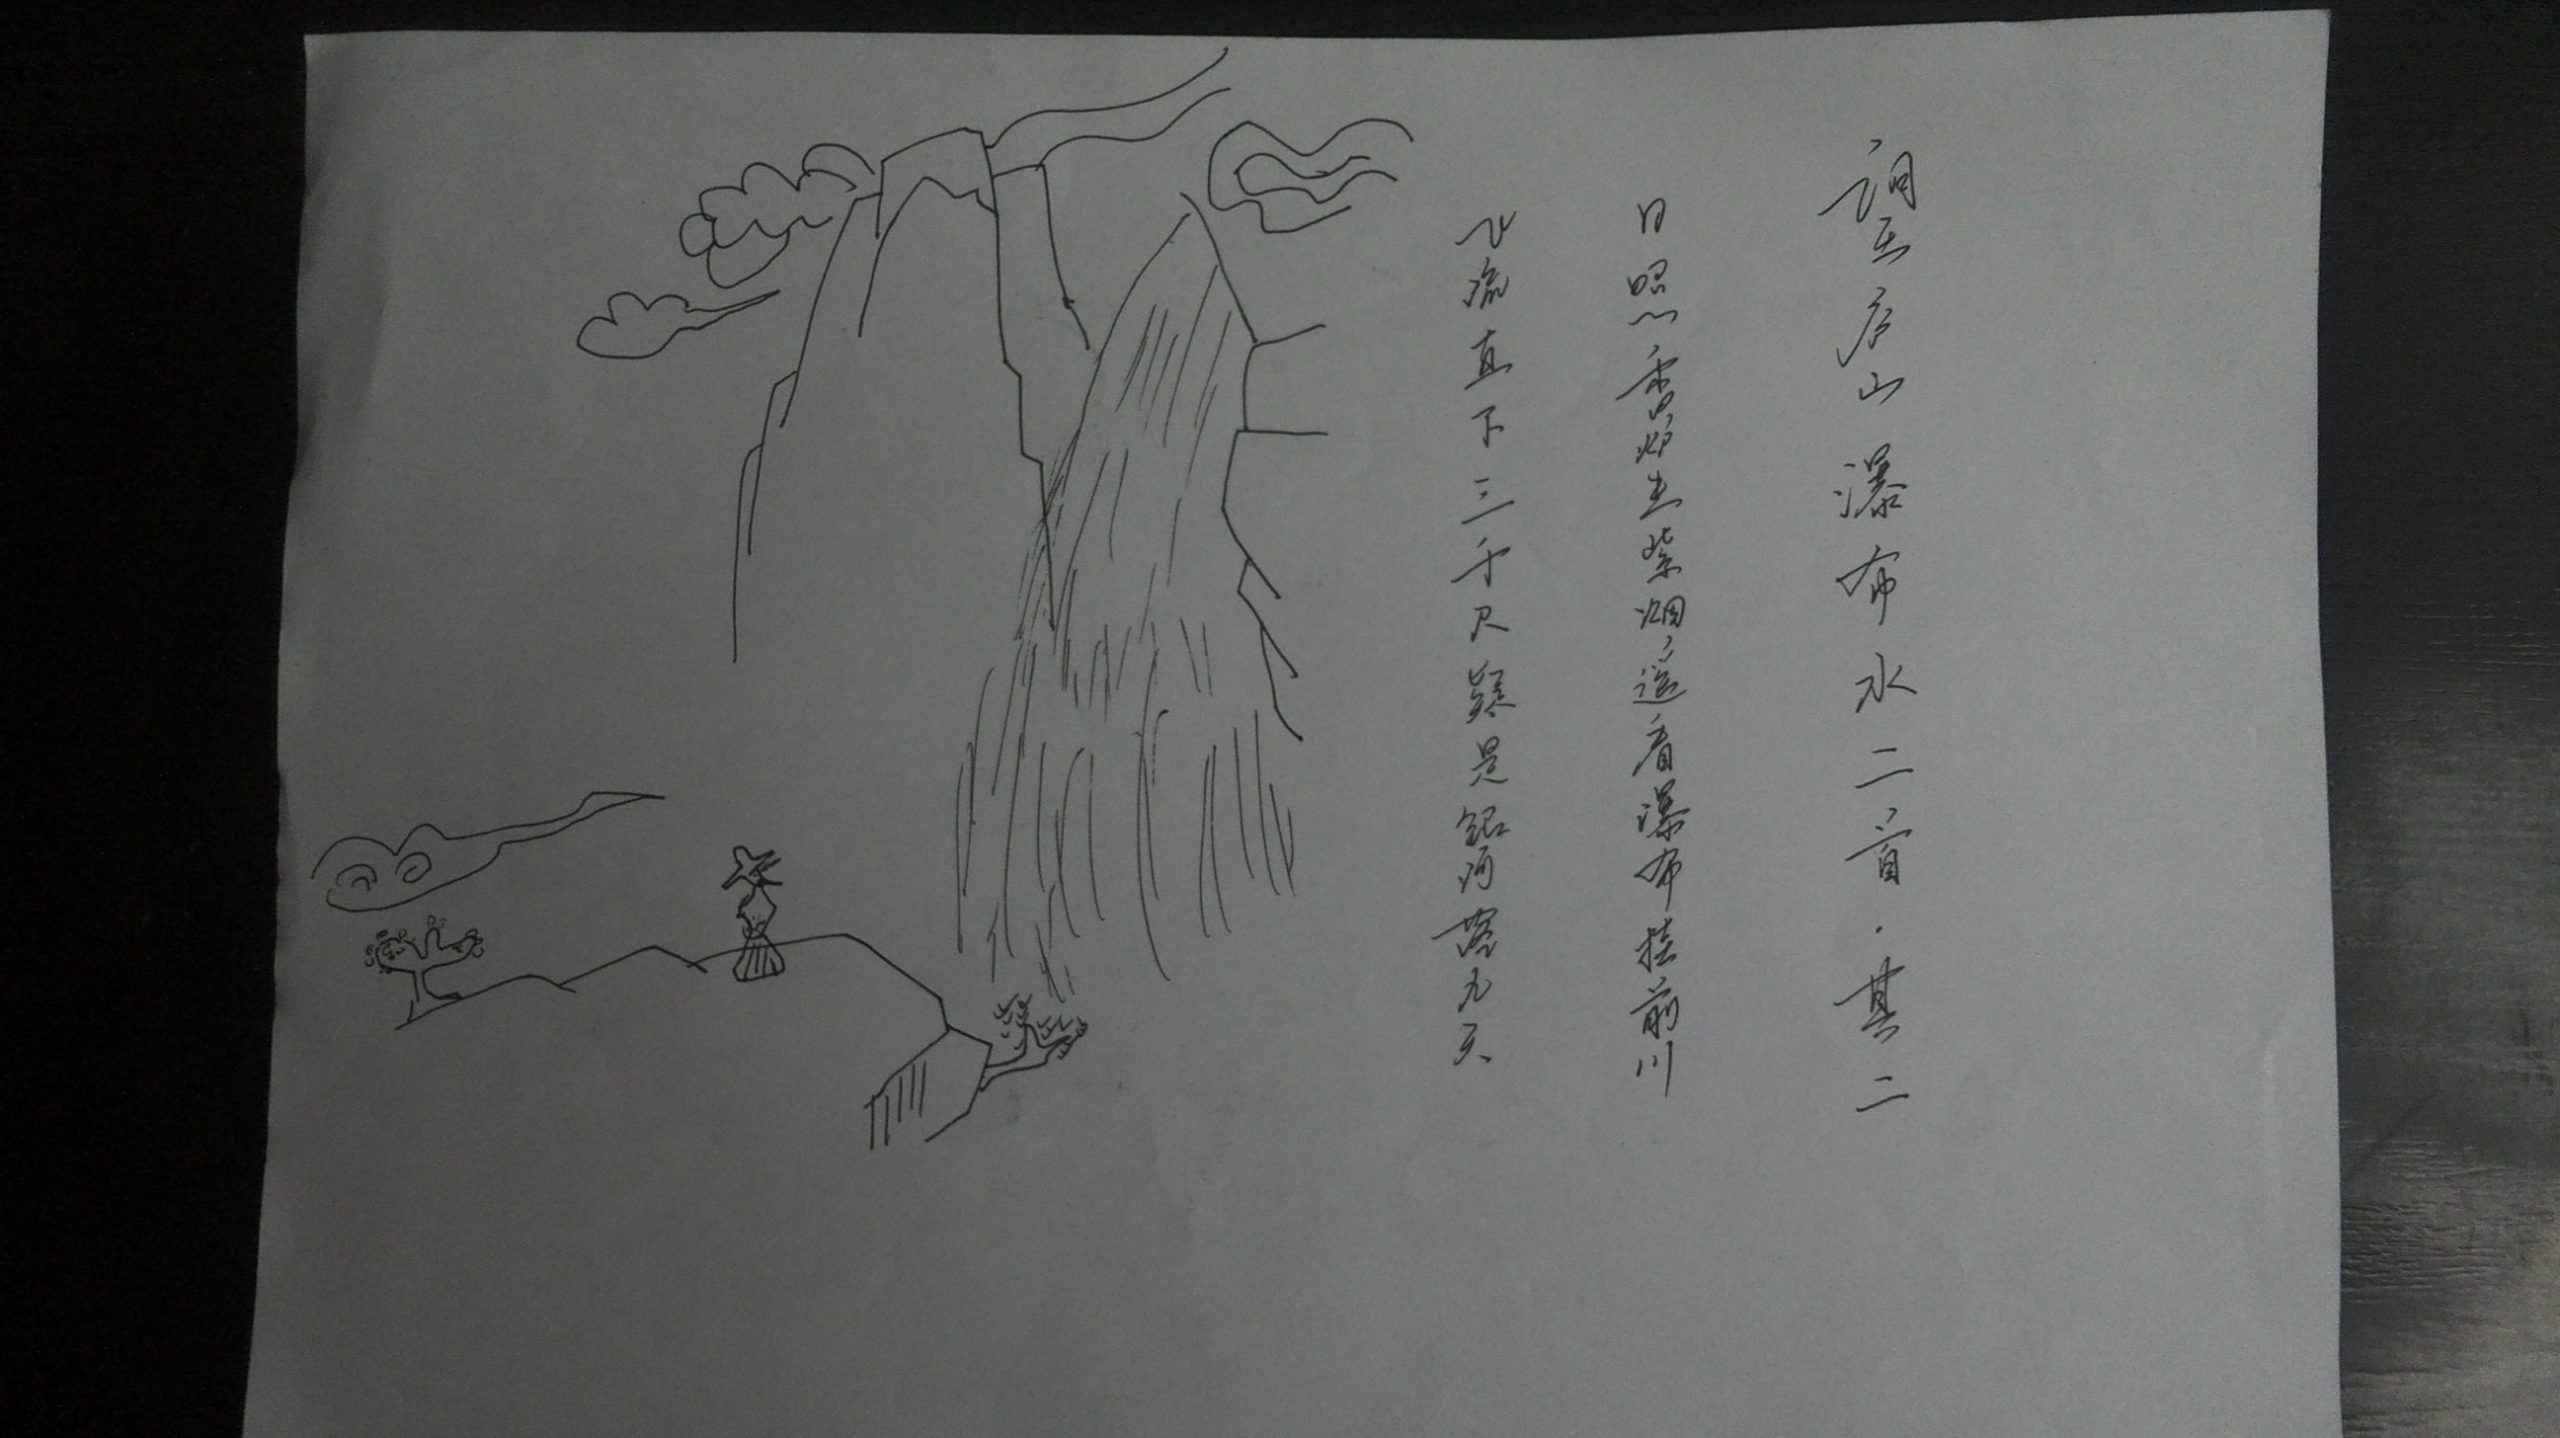 望庐山瀑布水二首·其二
日照香炉生紫烟遥看瀑布挂前川
飞流直下三千尺疑是银河落九天